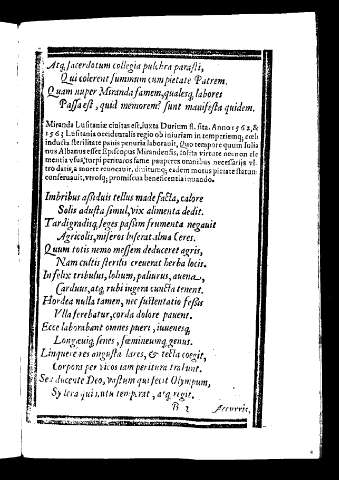 Atq; sacerdotum collegia pulchra parasti,
Qui colerent summum cum pietate Patrem.
Quam nuper Miranda famem, qualesq; labores
Passa est, quid memorem? sunt manifesta quidem.
Miranda Lusitaniæ ciuitas est, iuxta Durium fl. sita. Anno 1562, &
1563 Lusitania occidentalis regio ob iniuriam intemperiemq; cœli
inducta sterilitate panis penuria laborauit, Quo tempore quum Iulia
nus Albanus esset Episcopus Mirandensis, solita virtute nec non cle
mentia vsus, turpi penuria fame pauperes omnibus necessarijs vl
tro datis, a morte reuocauit, diuitumq; eadem motus pietate statum
conseruauit, vtrosq; promiscua beneficentia iuuando.
Imbribus assiduis tellus madefacta, calore
Solis adusta simul, vix alimenta dedit.
Tardigradisq; leges passim frumenta negauit
Agricolis, miseros liserat alma Ceres.
Quum totis nemo messem deduceret agris,
Nam cultis sterilis creuerat herba locis.
Infelix tribulus, lolium, paliurus, auena,
Carduus, atq; rubi iugera cuncta tenent.
Hordea nulla tamen, nec sustentatio fessis
Vlla ferebatur, corda dolore pauent.
Ecce laborabant omnes pueri, iuuenesq;
Longæuiq; senes, fœmineumq; genus.
Linquere res angusta lares, & tecta coegit,
Corpora per vicos iam peritura trahunt.
Sed ducente Deo, vastum qui fecit Olympum,
Sydera qui nutu temperat, atq; regit.
B 2 Accurrit,